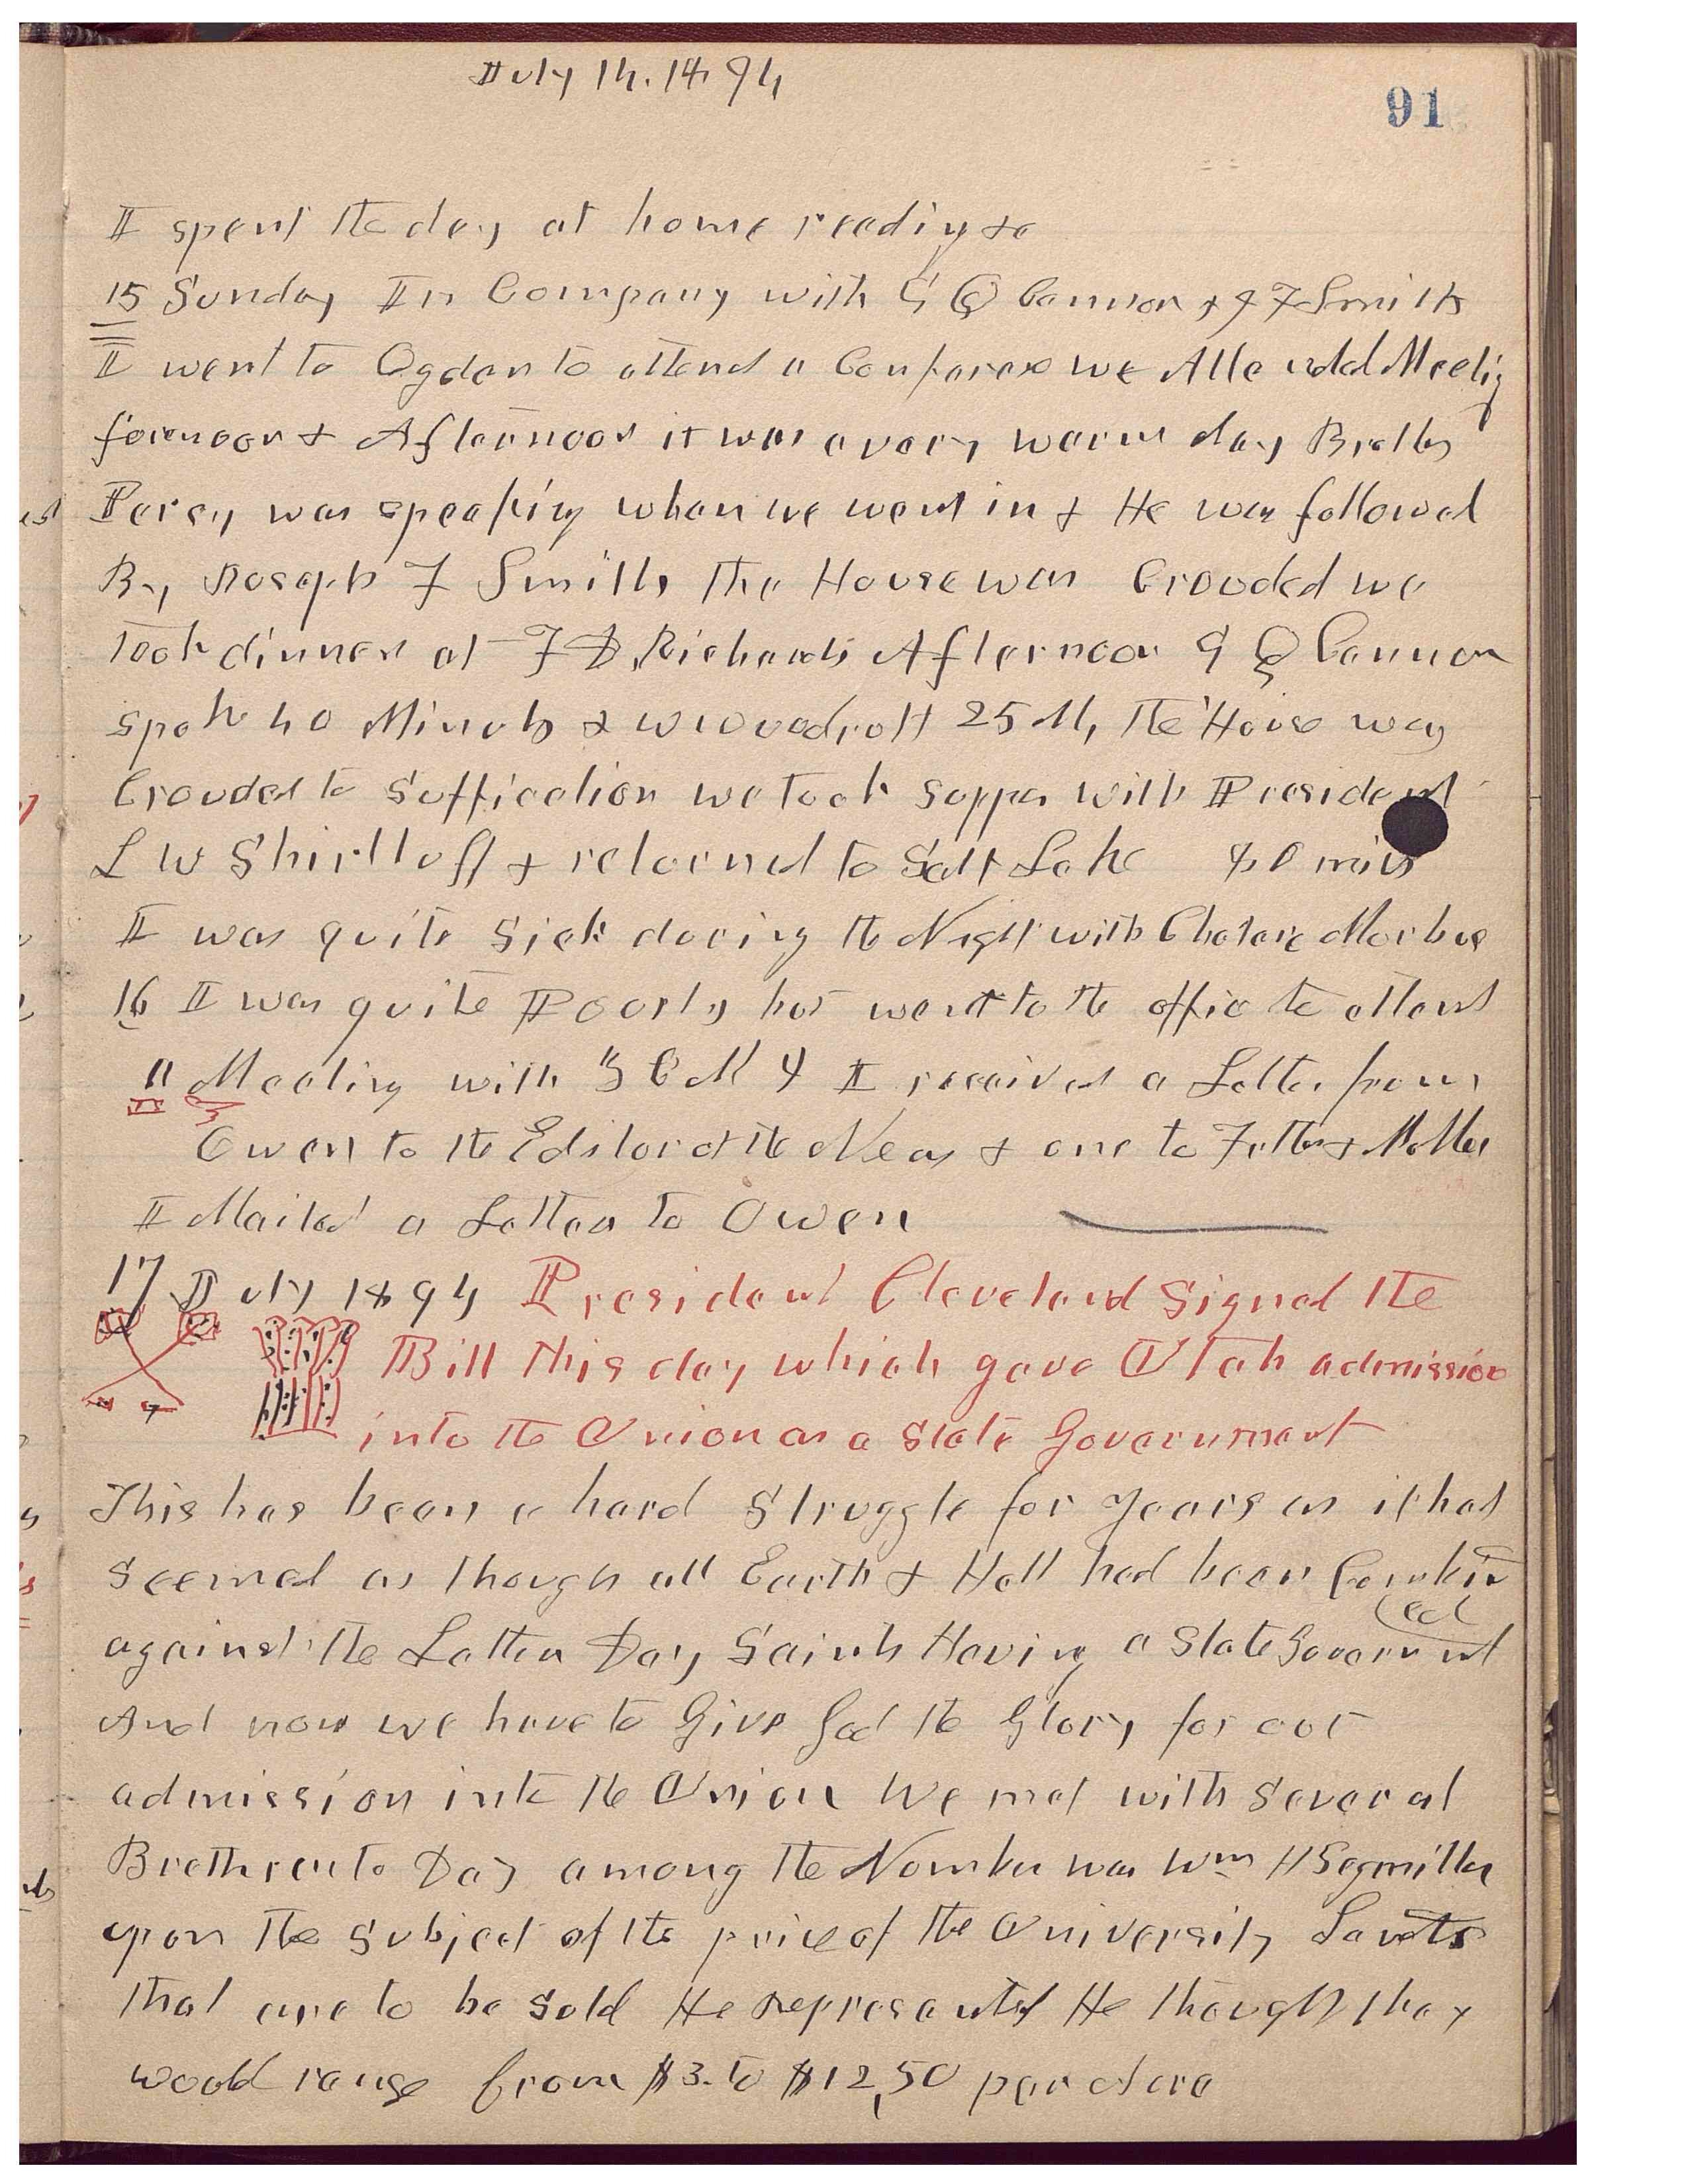 July 14. 1894
91
I spent the day at home reading &c
15 Sunday In Company with G Q Cannon & J F Smith
I went to Ogden to attend a Conference we Attended Meeting
forenoon & Afternoon it was a very warm day Brother
Perey was speaking when we went in & He was followed
By Joseph F Smith The House was Crouded we
took dinner at F D Richards Afternoon G Q Cannon
spoke 40 Minuts & W Woodruff 25 M, the House was
Crouded to Sufficcation we took supper with President
L W Shirtloff & returned to Salt Lake 80 mils
I was quite sick during the Night with Cholera Morbus
16 I was quite Poorly but went to the office to attend
a Meeting with Z C M I I received a Letter from
Owen to the Editor of the News & one to Father & Mother
I Mailed a Letter to Owen
17 July 1894 President Cleveland Signed the
Bill this day which gave Utah admission
into the Union as a State Government
This has been a hard Struggle for years as it had
seemed as though all Earth & Hell had been Combin
ed
against the Latter Day Saints Having a State Governmt
And now we have to Give God the Glory for our
admission into the Union We met with several
Brethren to Day among the Number was Wm H Segmiller
upon the subject of the price of the University Lands
that are to be sold He represented He thought they
would range from $3. to $12,50 per Acre